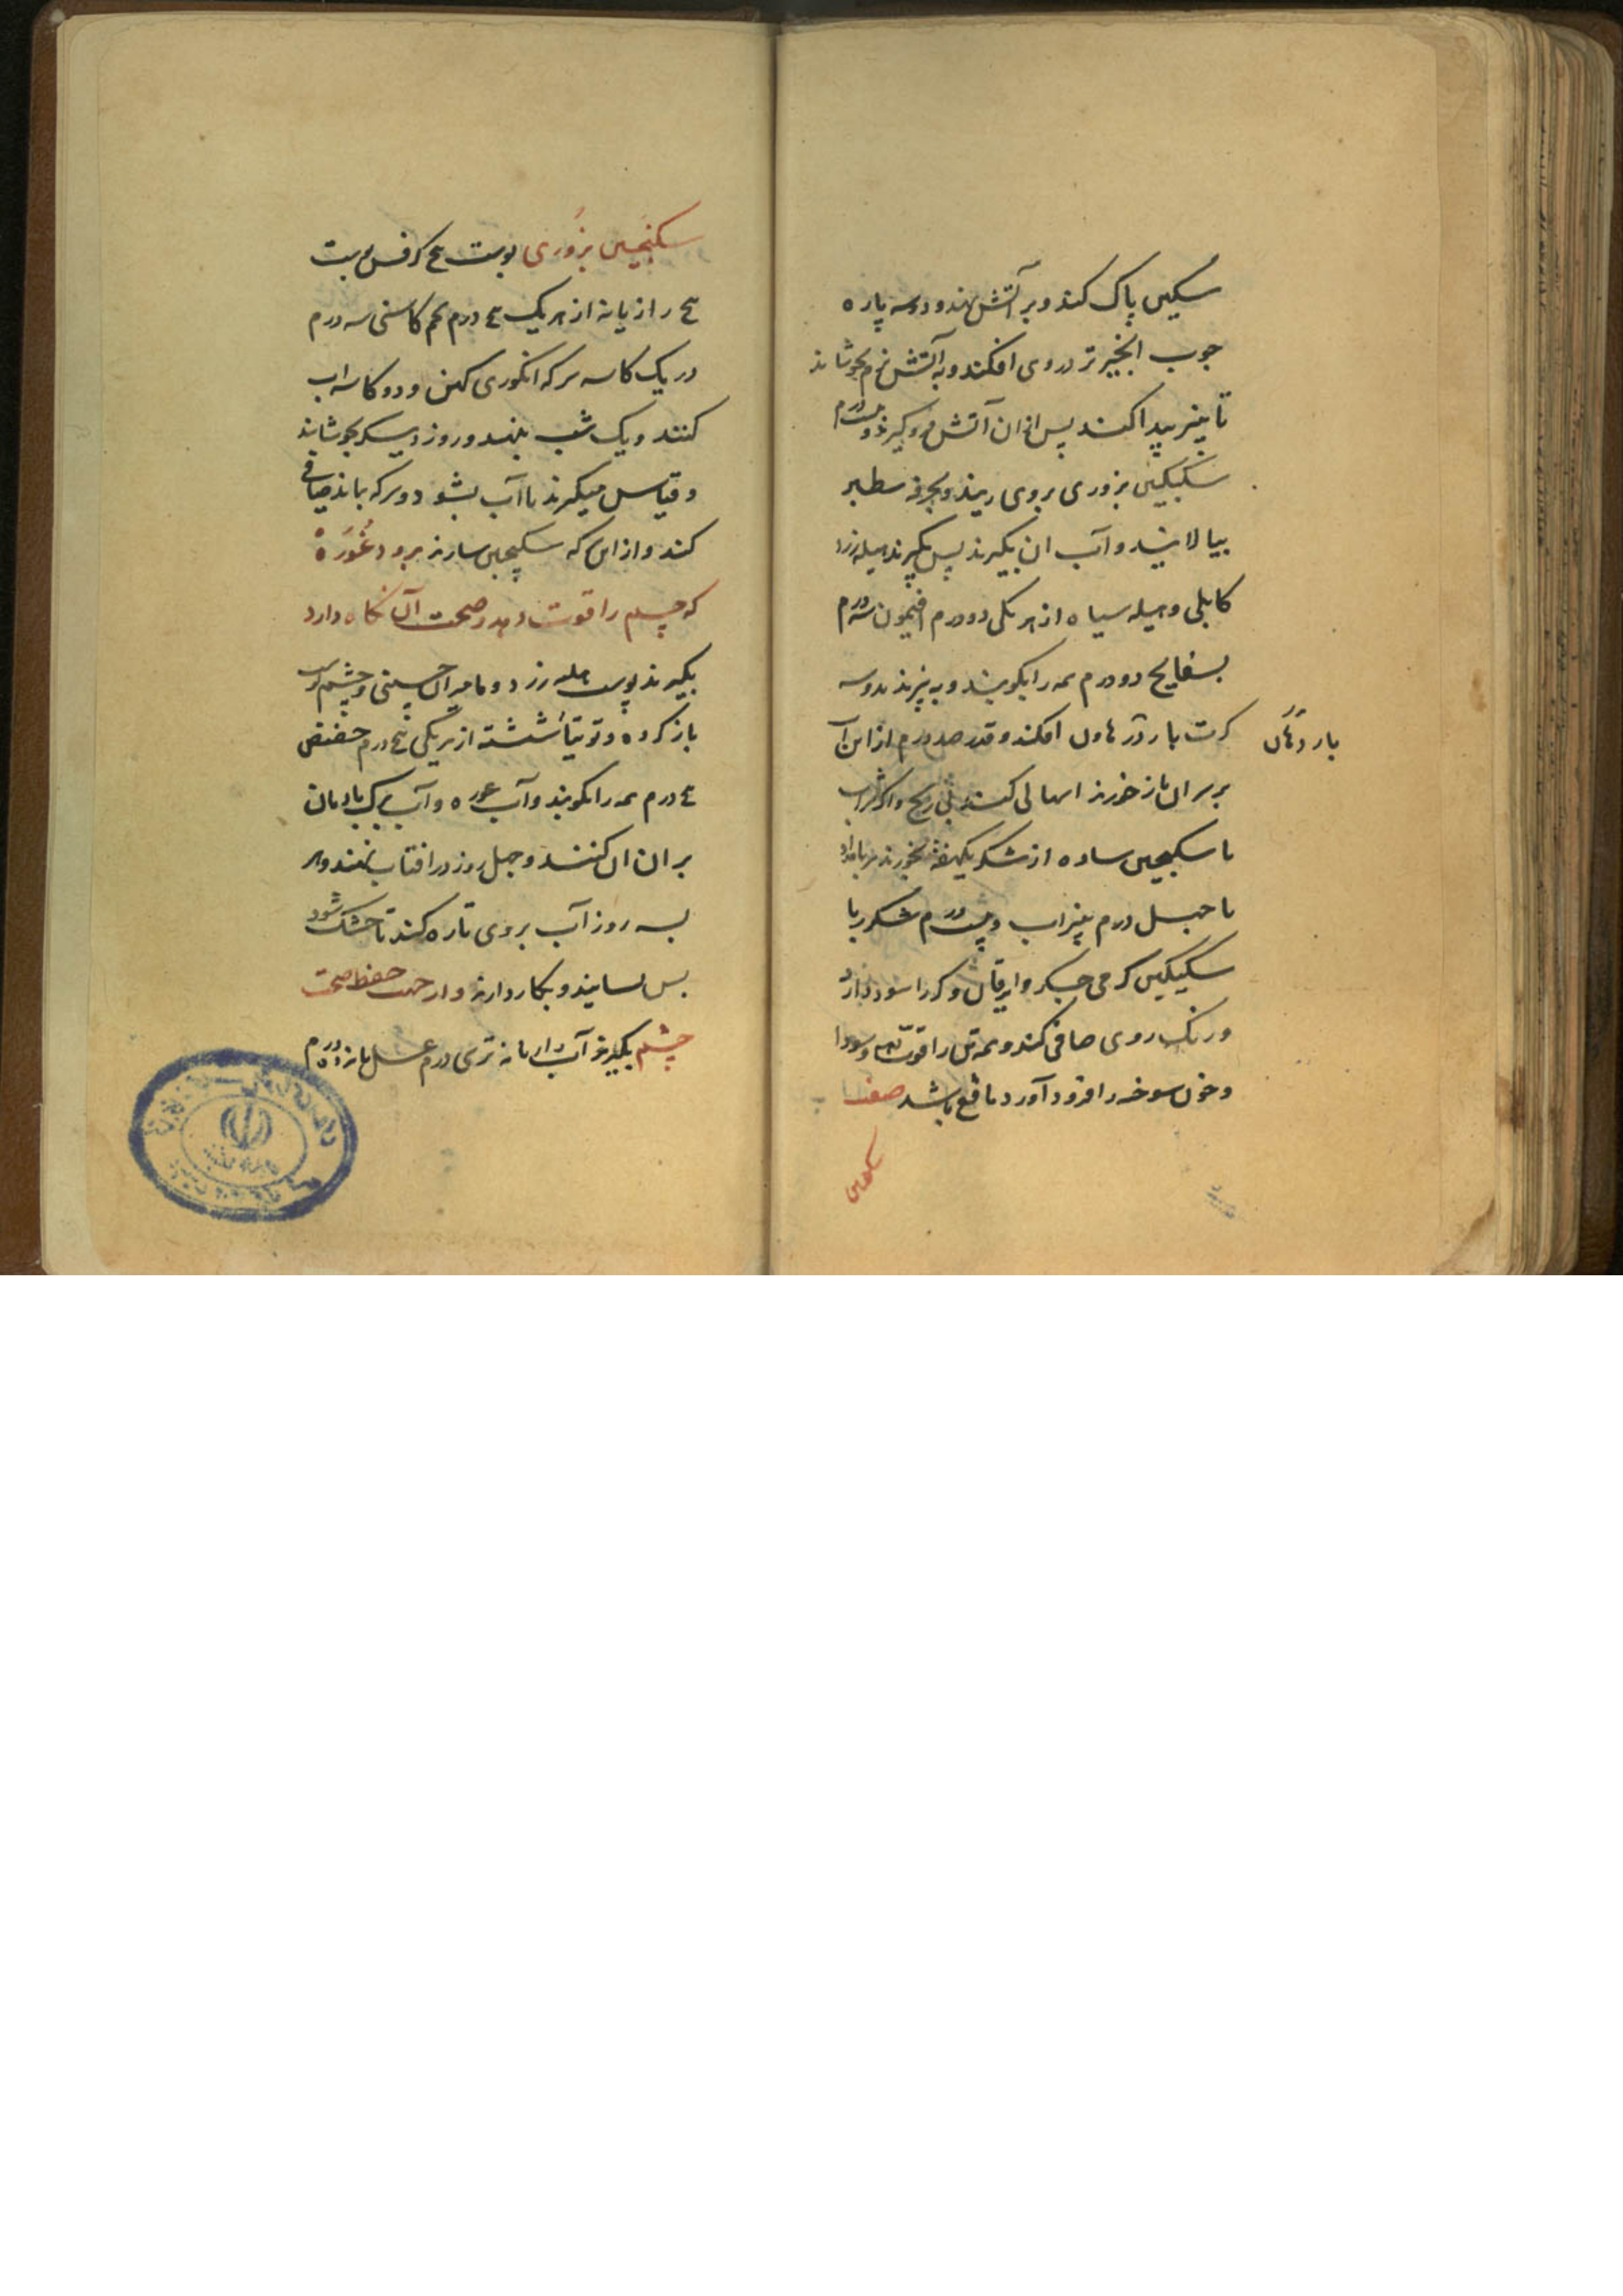 سکین پاک کند و بر آتش نهند و دوسه پاره
جوب انجیر تر در وی افکند و به آتش نرم بجوشاند
تا پنیر پیدا کند پس از ان آتش فرو گیرند و درم
سکنکبین بزوری بروی ریزند و بخرقه سطبر
بپالایند و آب ان بگیرند پس بگیرند هلیله زرد
کابلی و هلیله سیاه از هر یکی دو درم افتیمون سه درم
بسفایج دو درم همه را بکوبند و به پزند بدو سه
کرت بار در هاون افکند و قدر صد درم از این آب
بار دهان
بر سر ان باز خورند اسهالی کند بی رنج و اگر شراب
با سکنجبین ساده از شکر یکهفته بخورند هر بامداد
با جهل درم پنیراب و درم شکر با
سکنکبین کرمی جگر و یرقان و کر را سود دارد
و رنک روی صافی کند و همه تن را قوت دهد و سودا
و خون سوخته را فرود آورد نافع باشد صفت
سکنجبین
سکنجبین بزوری پوست بیخ کرفس پوست
بیخ رازیانه از هر یک پنج درم تخم کاسنی سه درم
در یک کاسه سرکه انکوری کهن و دو کاسه اب
کنند و یک شب بنهند و روز دیگر بجوشانند
و قیاس میکیرند تا آب بشود و سرکه بماند صافی
کند و از این سرکه سکنجبین سازند برود غوره
که چشم را قوت دهد و صحت آن نگاه دارد
بگیرند پوست هلیله زرد و مامیران چینی و پوست
باز کرده و توتیا شسته از هر یکی پنج درم حضض
پنج درم همه را بکوبند و آب غوره و آب برک بادیان
بر ان ان کنند و جهل روز در افتاب بنهند و هر
بسه روز آب بروی تازه کند تا خشک شود
پس بسایند و بکار دارند و از جهت حفظ صحت
چشم بگیرند آب رازیانه تری درم عسل پانزده درم